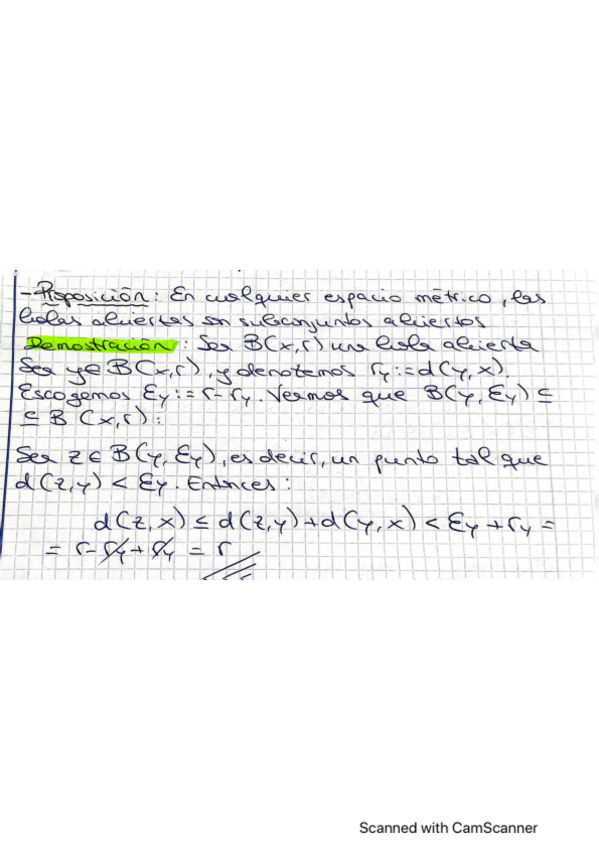 - Proposición: En cualquier espacio métrico, las
bolas abiertas son subconjuntos abiertos
Demostración: Sea B(x,r) una bola abierta
Sea y∈B(x,r), y denotemos r_y:=d(y,x).
Escogemos ε_y:=r-r_y. Veamos que B(y,ε_y)⊆
⊆B(x,r):
Sea z∈B(y,ε_y), es decir, un punto tal que
d(z,y)<ε_y. Entonces:
d(z,x)≤d(z,y)+d(y,x)<ε_y+r_y=
=r-r_y+r_y=r
Scanned with CamScanner